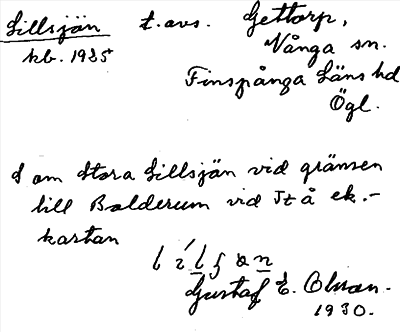 Lillsjön t. avs. Gettorp,
kb. 1935 Vånga sn.
Finspånga Läns hd
Ögl.
S om Stora Lillsjön vid gränsen
till Bolderum vid Jt å ek.-
kartan
Gustaf E. Olsson.
1930.